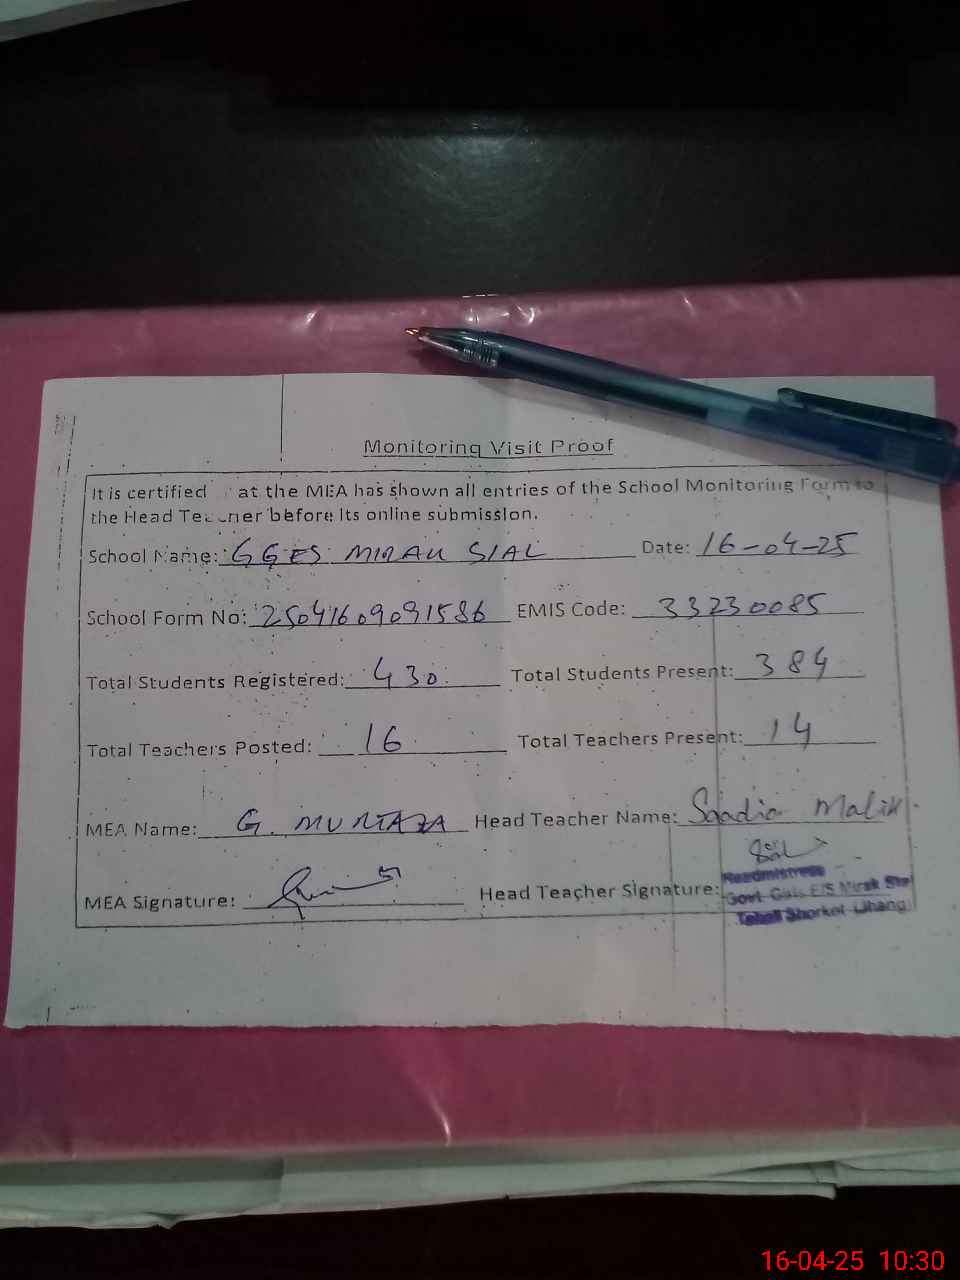 Monitoring Visit Proof
It is certified at the MEA has shown all entries of the School Monitoring Form to
the Head Teacher before Its online submission.
School Name: GGES MIRAK SIAL Date: 16-04-25
School Form No: 2504160909 1586 EMIS Code: 33230085
Total Students Registered: 430 Total Students Present: 384
Total Teachers Posted: 16 Total Teachers Present: 14
MEA Name: G. MURTAZA Head Teacher Name: Saadia Malik
MEA Signature: Head Teacher Signature:
Headmistress
Govt. Girls E/S Mirak Sial
Tehsil Shorkot Jhang
16-04-25 10:30